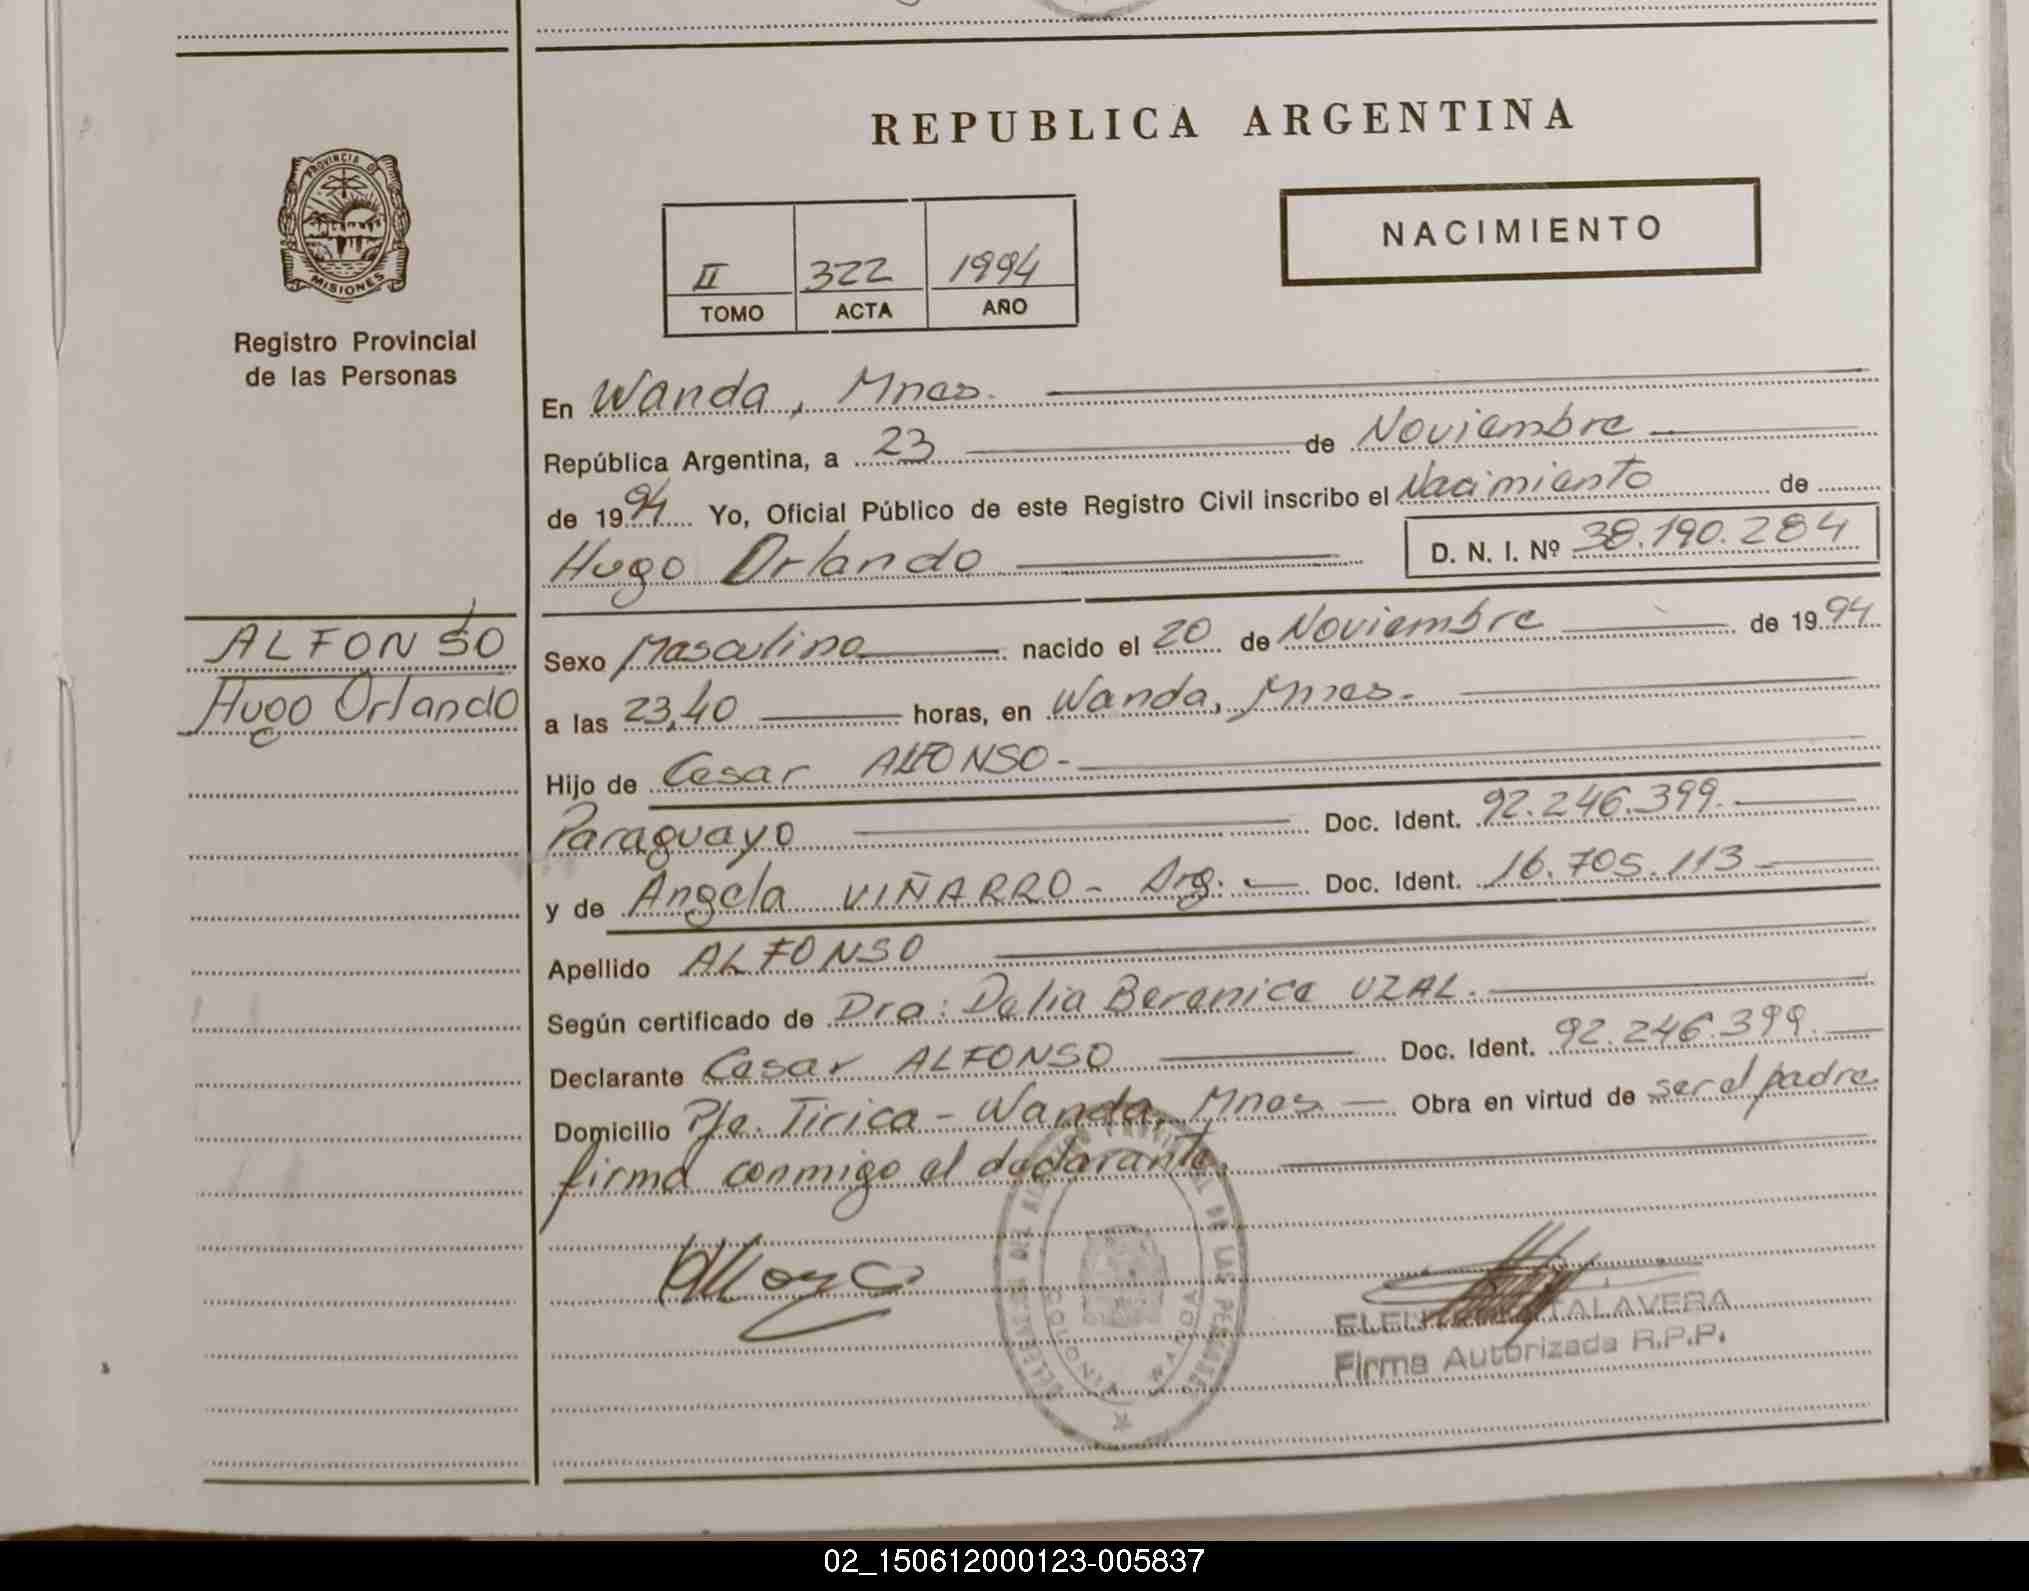 REPUBLICA ARGENTINA
PROVINCIA DE
MISIONES
Registro Provincial
de las Personas
II 322 1994
TOMO ACTA AÑO
NACIMIENTO
En Wanda, Mnes.
República Argentina, a 23 de Noviembre
de 1994 Yo, Oficial Público de este Registro Civil inscribo el Nacimiento de
Hugo Orlando D. N. I. Nº 38.190.284
ALFONSO
Hugo Orlando
Sexo Masculino nacido el 20 de Noviembre de 1994
a las 23,40 horas, en Wanda, Mnes.
Hijo de Cesar ALFONSO-
Paraguayo Doc. Ident. 92.246.399.
y de Angela VIÑARRO- Arg. Doc. Ident. 16.705.113
Apellido ALFONSO
Según certificado de Dra: Delia Berenice UZAL.
Declarante Cesar ALFONSO Doc. Ident. 92.246.399.
Domicilio Pje. Tirica - Wanda, Mnes Obra en virtud de ser el padre
firma conmigo el declarante.
DE LAS PERSONAS
WANDA
TALAVERA
Firma Autorizada R.P.P.
02_150612000123-005837